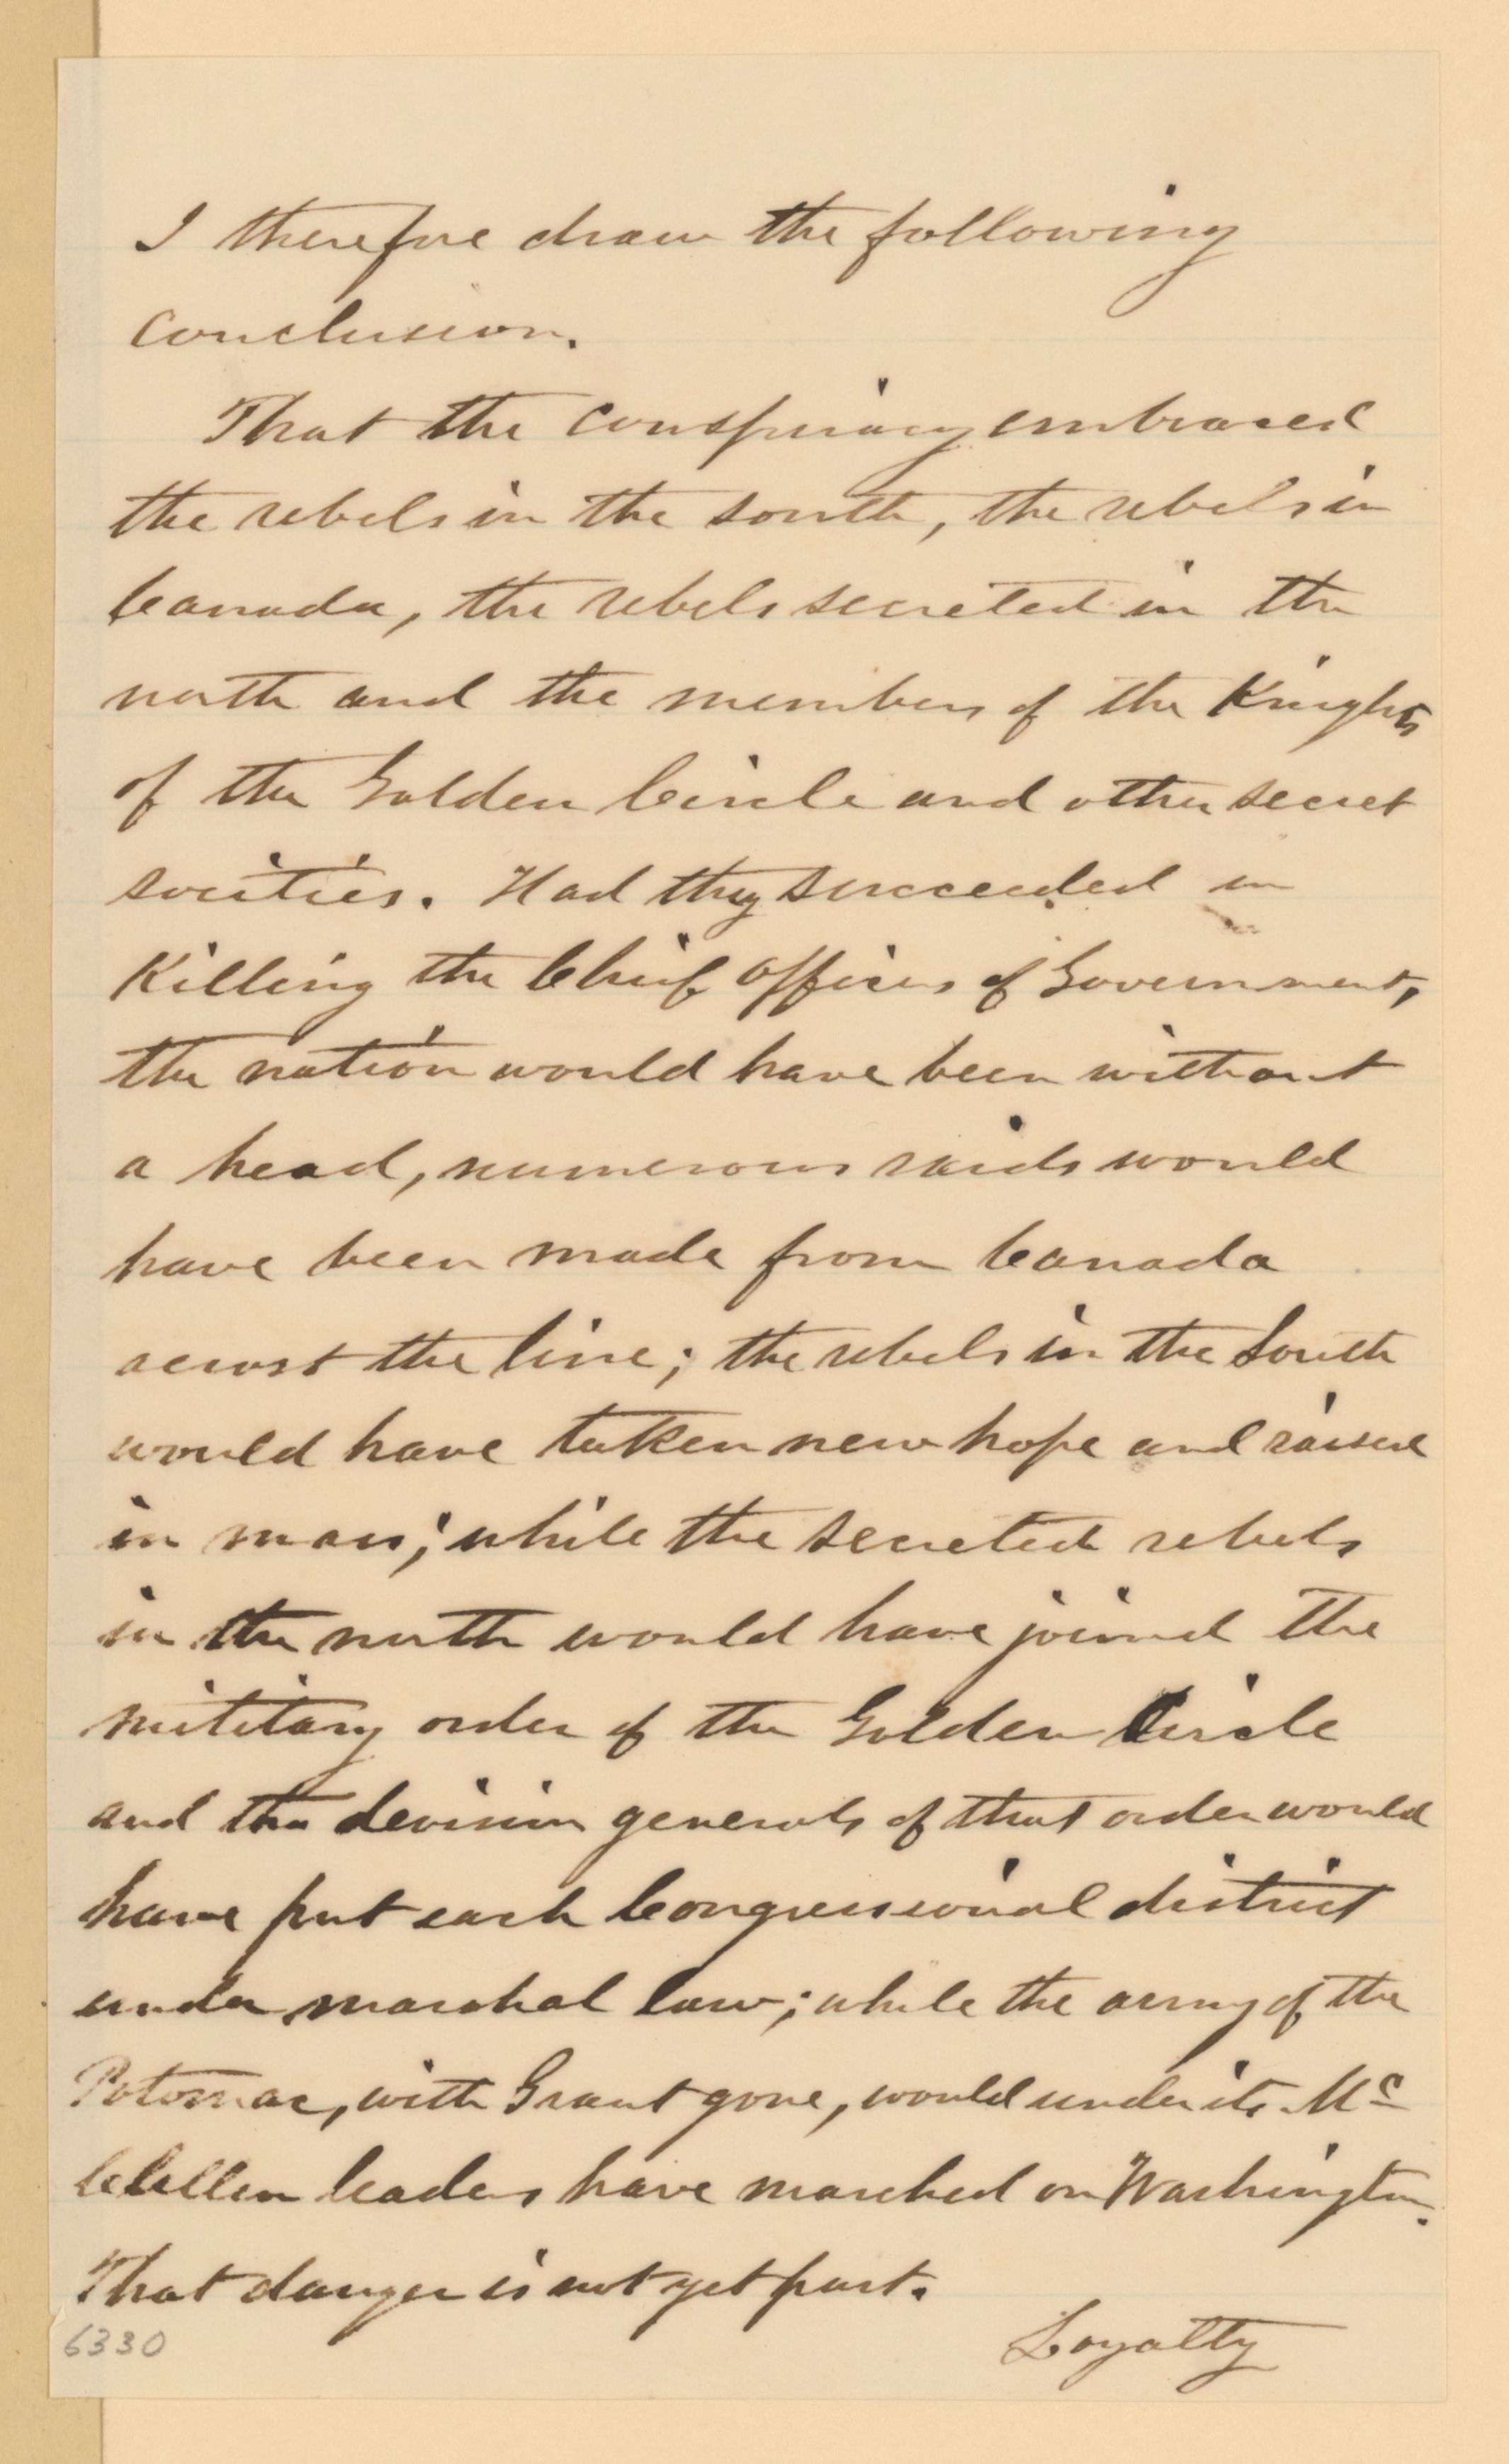 I therefore draw the following
conclusion.
That the conspiracy embraced
the rebels in the south, the rebels in
Canada, the rebels secreted in the
north and the members of the Knights
of the Golden Circle and other secret
societies. Had they succeeded in
Killing the Chief Officers of Government,
the nation would have been without
a head, numerous raids would
have been made from Canada
acrost the line; the rebels in the South
would have taken new hope and raised
in mass; while the secreted rebels
in the north would have joined the
military order of the Golden Circle
and the devision generals of that order would
have put each Congressional district
under marshal law; while the army of the
Potomac, with Grant gone, would under its Mc
Clellen leaders have marched on Washington.
That danger is not yet past.
Loyalty
6330